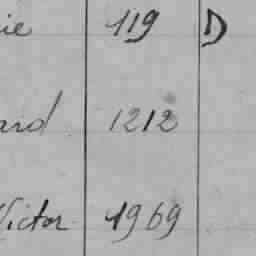 ie 119 D
ard 1212
Victor 1969